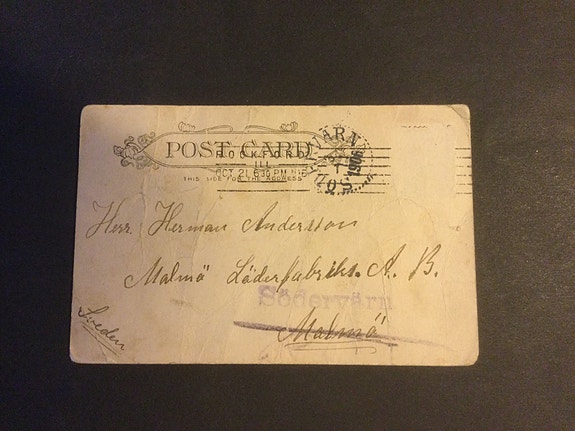 POST CARD
ROCKFORD
ILL.
OCT 21 6 30 PM
THIS SIDE FOR THE ADDRESS
1906
Herr Herman Andersson
Malmö Läderfabriks A. B.
Södervärn
Malmö
Sweden